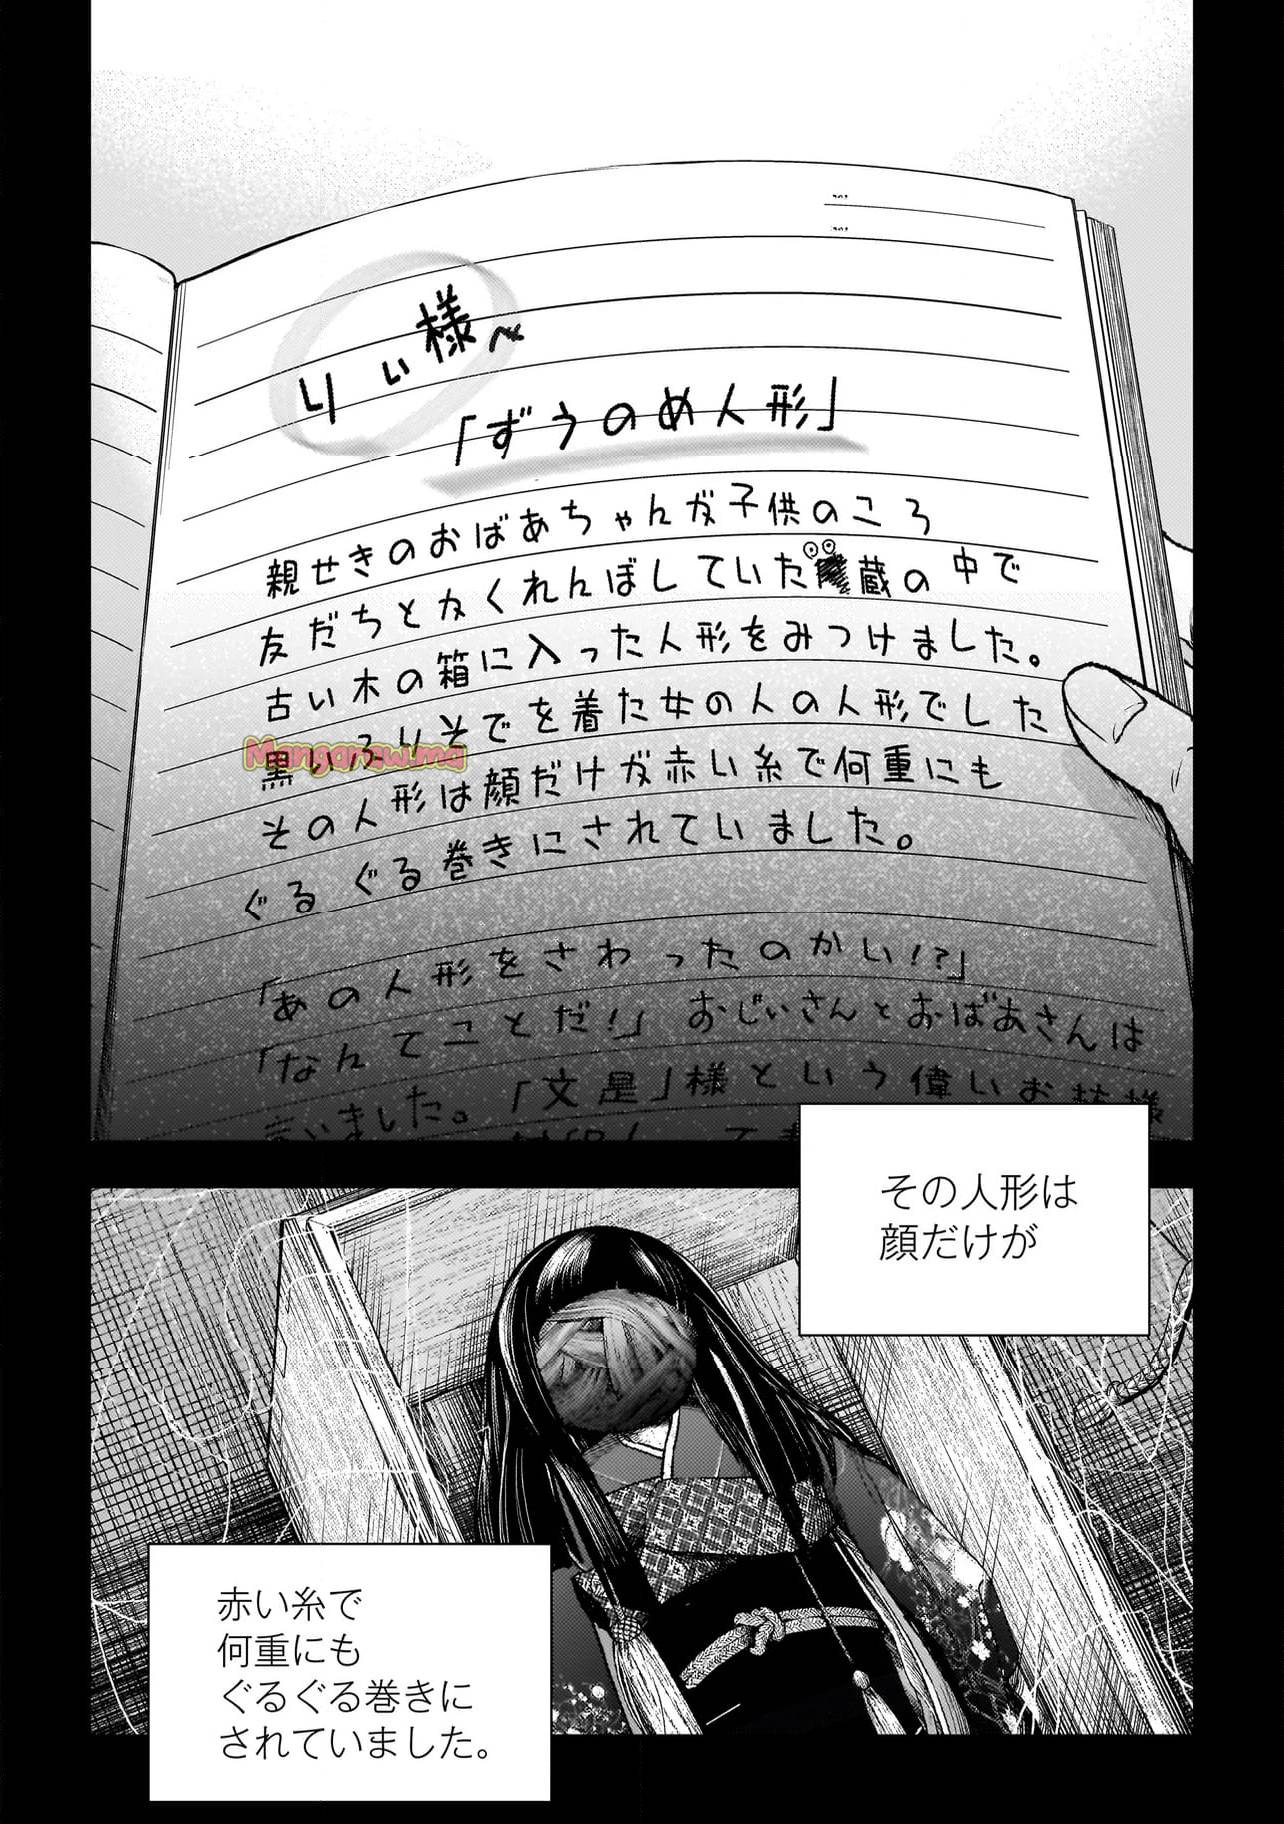 りぃ様へ
「ずうのめ人形」
親せきのおばあちゃんが子供のころ
友だちとかくれんぼしていた蔵の中で
古い木の箱に入った人形をみつけました。
黒いふりそでを着た女の人の人形でした
Mangaraw.ma
その人形は顔だけが赤い糸で何重にも
ぐるぐる巻きにされていました。
「あの人形をさわったのかい!?」
「なんてことだ!」おじいさんとおばあさんは
言いました。「文是」様という偉いお坊様
その人形は
顔だけが
赤い糸で
何重にも
ぐるぐる巻きに
されていました。